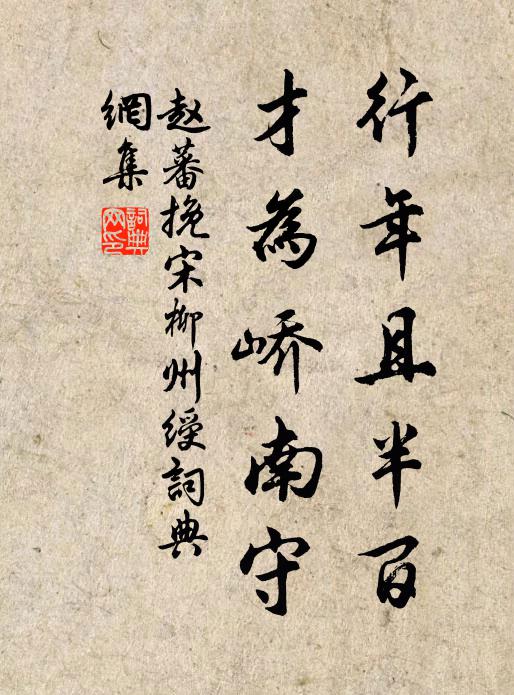 行年且半百
才為嶠南守
赵蕃挽宋柳州绶詞典
網集
詞典
网印